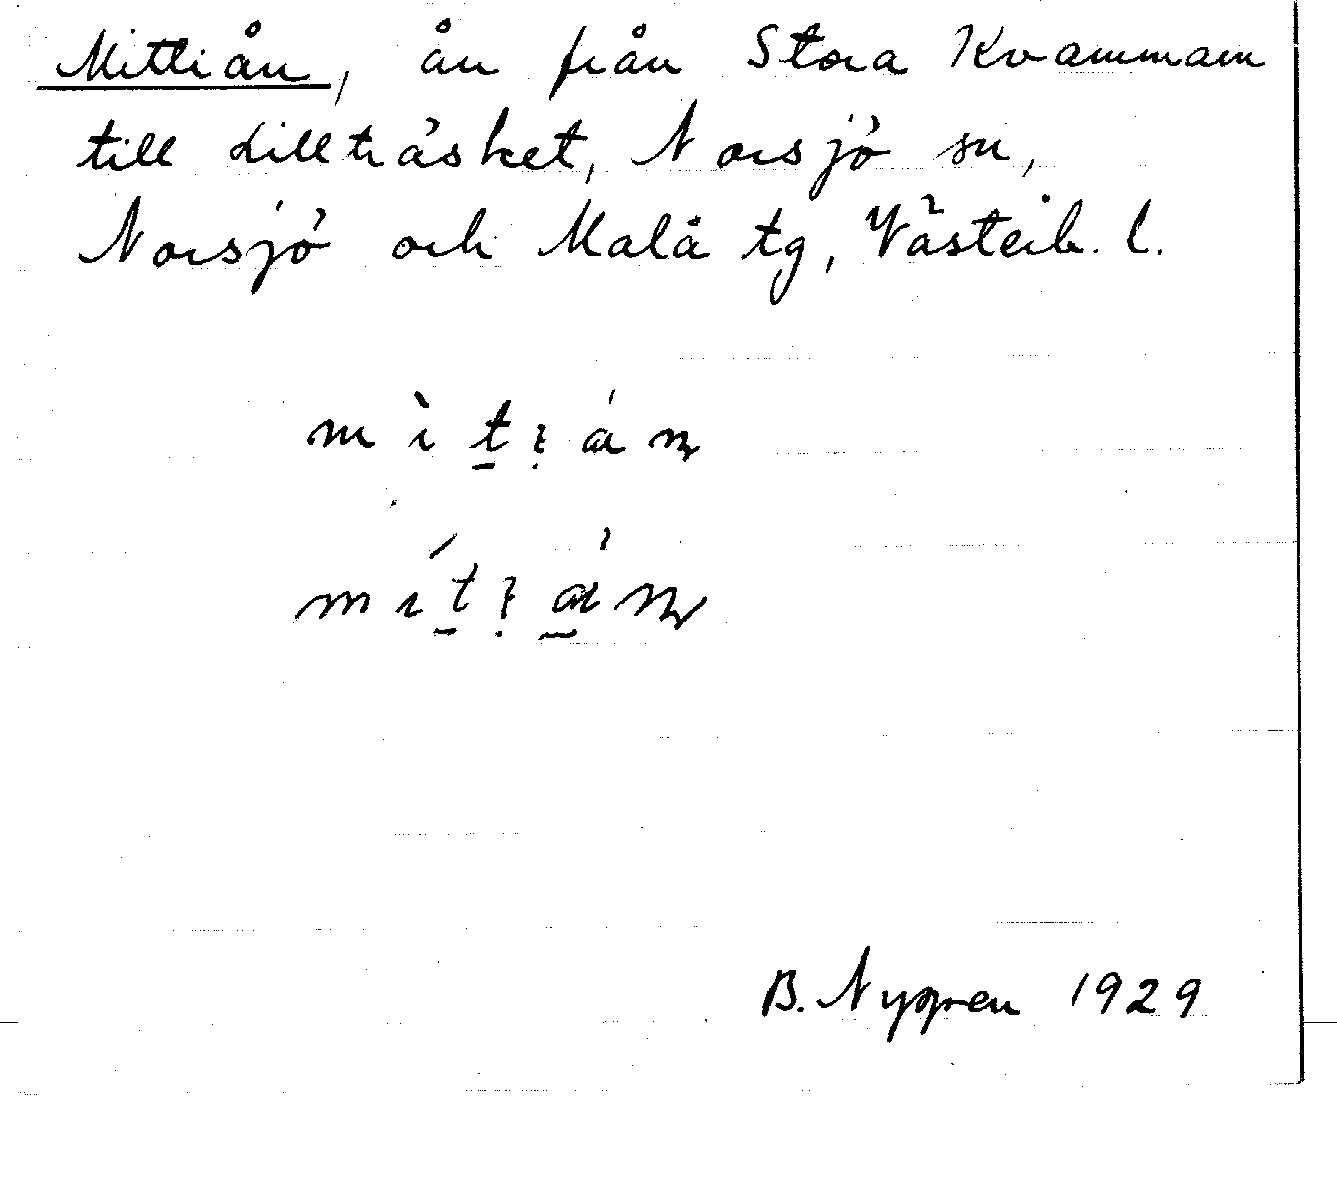 Mittiån, ån från Stora Kvammarn
till Lillträsket, Norsjö sn,
Norsjö och Malå tg, Västerb. l.
B. Nygren 1929